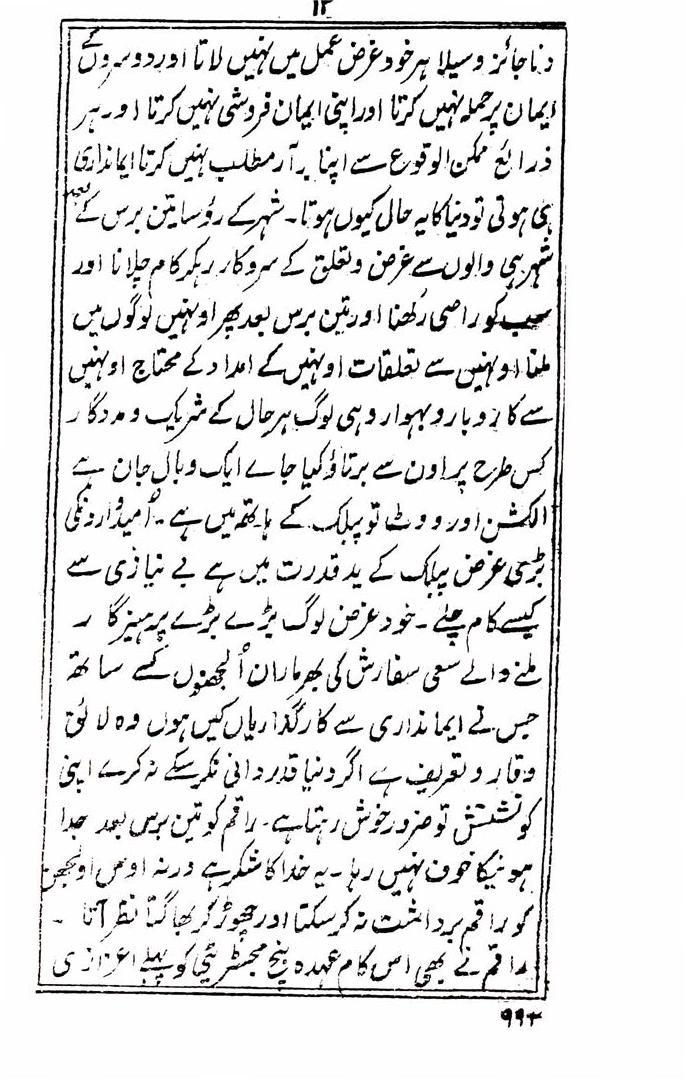 ۱۲
دنا جائز وسیلا ہر خود غرض عمل میں نہیں لاتا اور دوسروں کے
ایمان پر حملہ نہیں کرتا اور اپنی ایمان فروشی نہیں کرتا اور ہر
ذرائع ممکن الوقوع سے اپنا برآر مطلب نہیں کرتا ایمانداری
ہی ہوتی تو دنیا کا یہ حال کیوں ہوتا۔ شہر کے رؤسا تین برس کے بعد
شہر ہی والوں سے غرض و تعلق کے سروکار رہکر کام چلانا اور
سب کو راضی رکھنا اور تین برس بعد پھر اونہیں لوگوں میں
ملنا اونہین سے تعلقات اونہیں کے امداد کے محتاج اونہیں
سے کاروبار و بہوار وہی لوگ ہر حال کے شریک و مددگار
کس طرح پر اون سے برتاؤ کیا جاے ایک وبال جان ہے
الکشن اور ووٹ تو پبلک کے ہاتھ میں ہے۔ اُمیدوارونکی
بڑی غرض پبلک کے ید قدرت میں ہے بے نیازی سے
کیسے کام چلے۔ خود غرض لوگ بڑے بڑے پرہیزگار
ملنے والے سعی سفارش کی بھرمار ان اُلجھنوں کے ساتھ
جس نے ایمانداری سے کارگذاریاں کیں ہوں وہ لائق
وقار و تعریف ہے اگر دنیا قدردانی نکرسکے نہ کرے اپنی
کونشنش تو ضرور خوش رہتا ہے۔ راقم کو تین برس بعد جدا
ہونیکا خوف نہیں رہا۔ یہ خدا کا شکر ہے ورنہ اوس اولجھن
کو راقم برداشت نہ کرسکتا اور چھوڑ کر بھاگتا نظر آتا۔
راقم نے بھی اس کام عہدہ پنچ مجسٹریٹی کو پہلے اعزازی
۹۹۲